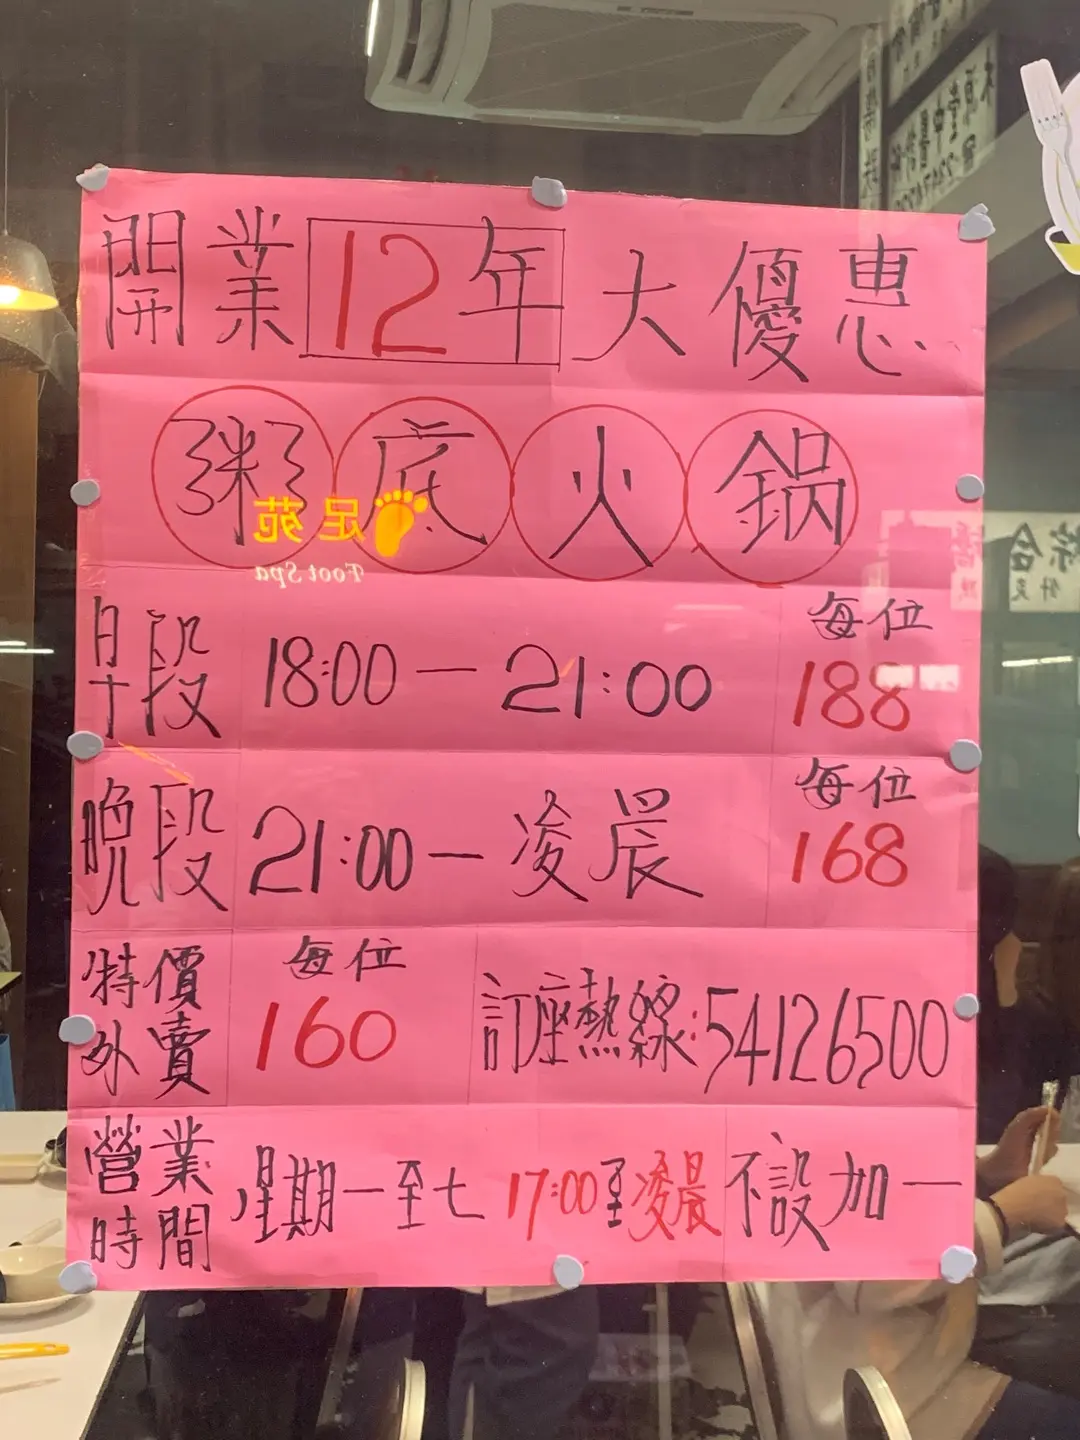 開業12年大優惠
粥底火鍋
足苑
Foot Spa
早段 18:00 — 21:00 每位 188
晚段 21:00 — 凌晨 每位 168
特價外賣 每位 160 訂座熱線:54126500
營業時間 星期一至七 17:00至凌晨 不設加一
綜合